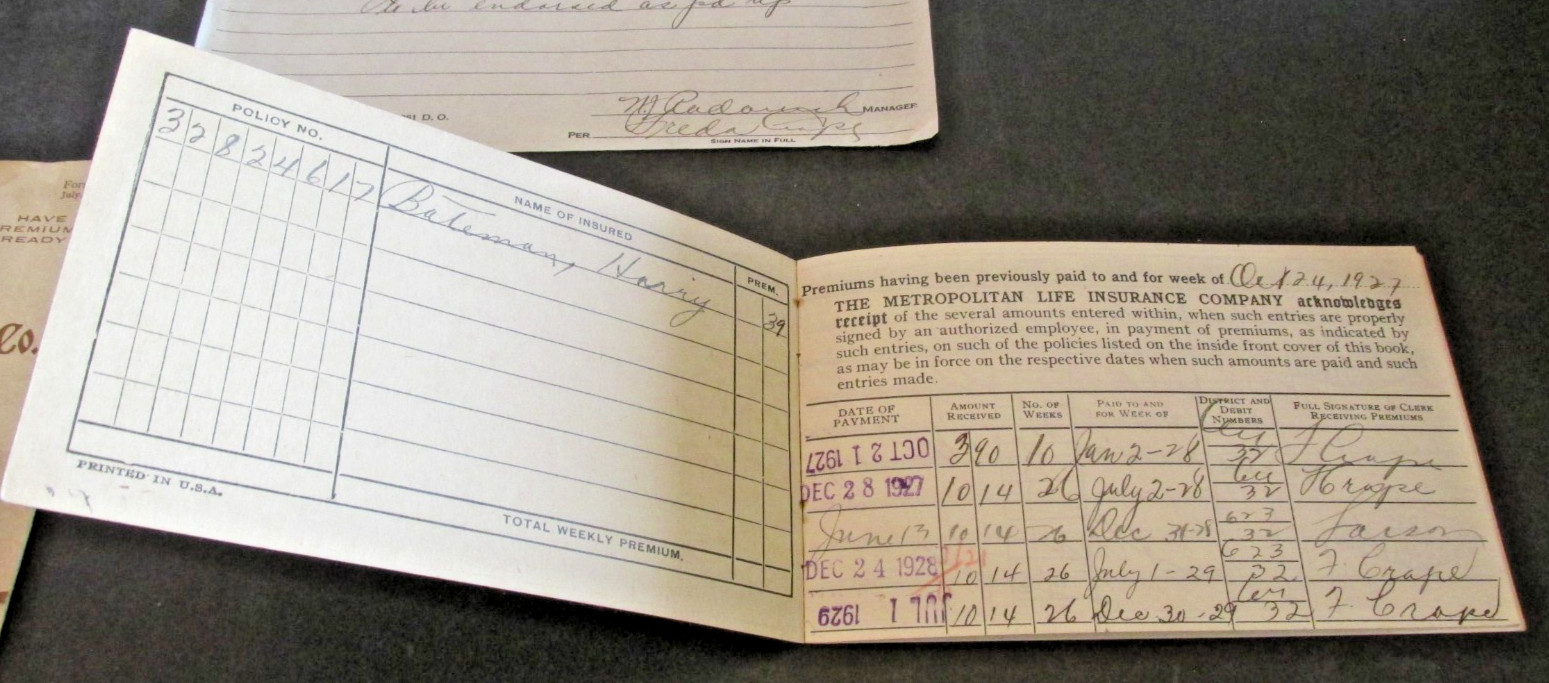 to be endorsed as pd up
D. O.
MANAGER
PER Freda
SIGN NAME IN FULL
HAVE
PREMIUM
READY
Co.
POLICY NO. NAME OF INSURED PREM.
32824617 Bateman, Harry 39
PRINTED IN U.S.A.
TOTAL WEEKLY PREMIUM,
Premiums having been previously paid to and for week of Oct 24, 1927
THE METROPOLITAN LIFE INSURANCE COMPANY acknowledges
receipt of the several amounts entered within, when such entries are properly
signed by an authorized employee, in payment of premiums, as indicated by
such entries, on such of the policies listed on the inside front cover of this book,
as may be in force on the respective dates when such amounts are paid and such
entries made.
DATE OF PAYMENT AMOUNT RECEIVED NO. OF WEEKS PAID TO AND FOR WEEK OF DISTRICT AND DEBIT NUMBERS FULL SIGNATURE OF CLERK RECEIVING PREMIUMS
OCT 21 1927 3 90 10 Jan 2-28 32
DEC 28 1927 10 14 26 July 2-28 32
June 13 10 14 26 Dec 31-28 623 32 Larson
DEC 24 1928 10 14 26 July 1-29 623 32 F. Crape
JUL 1 1929 10 14 26 Dec 30-29 32 F. Crape